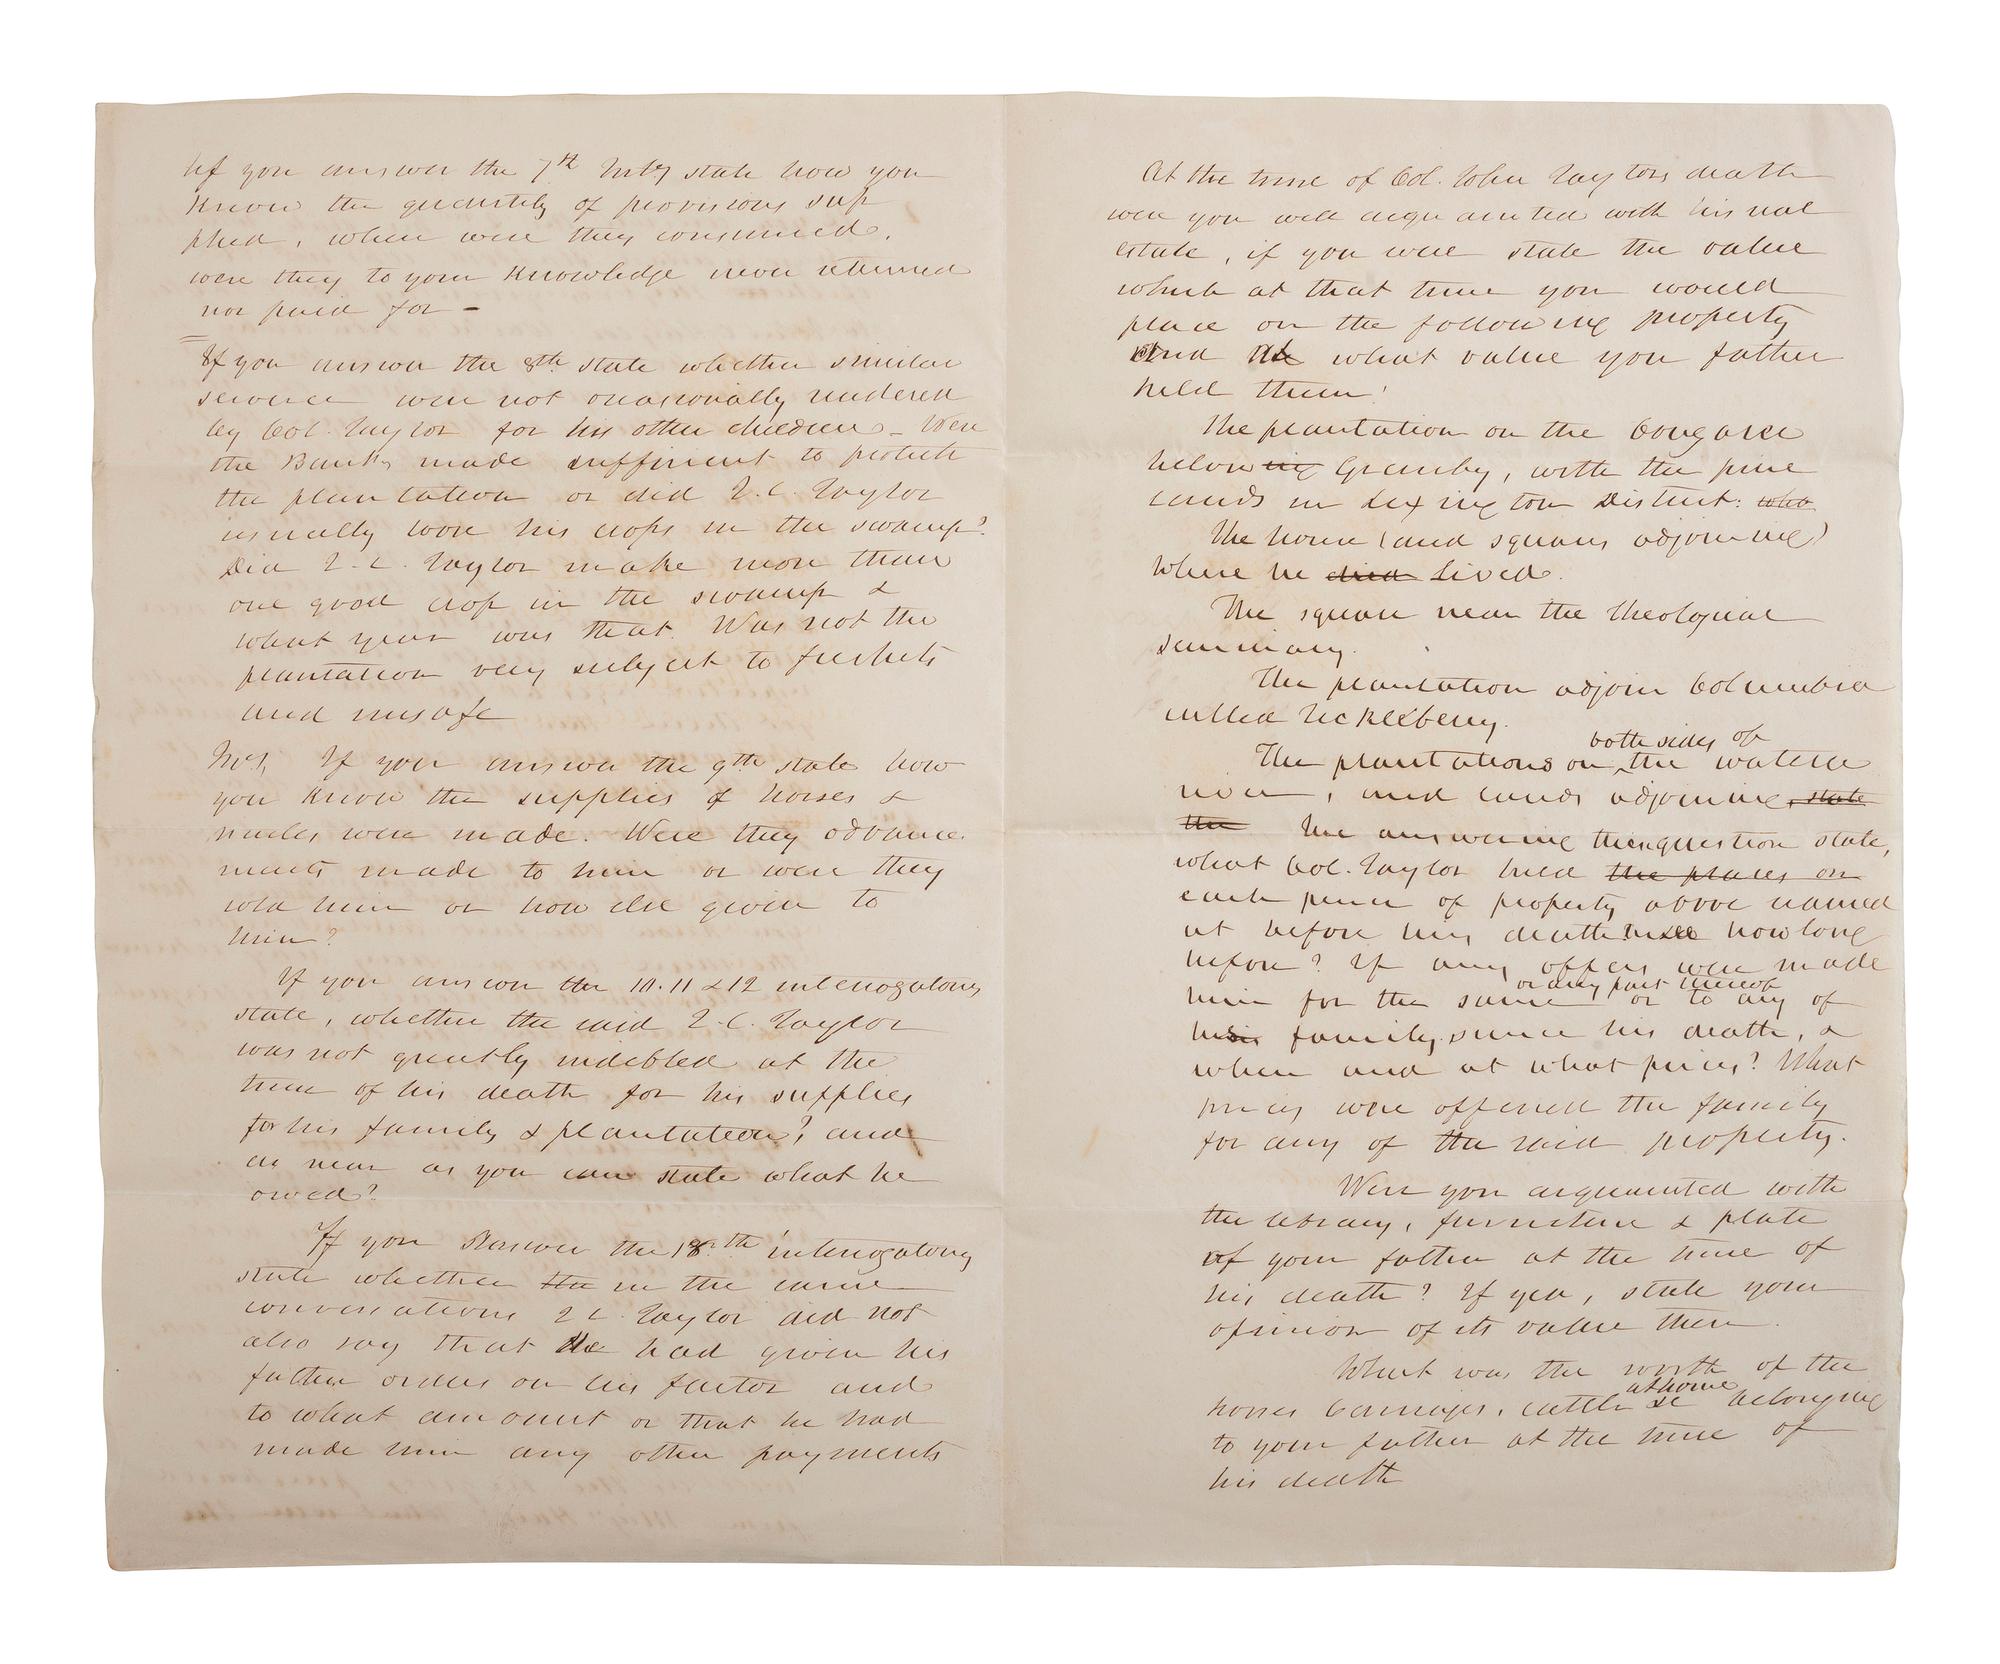 If you answer the 7th Inty state how you
know the quantity of provisions sup
plied, when were they consumed,
were they to your knowledge never returned
nor paid for -
If you answer the 8th state whether similar
services were not occasionally rendered
by Col. Taylor for his other children - Were
the Banks made sufficient to protect
the plantation or did T. C. Taylor
usually lose his crops in the swamp?
Did T. C. Taylor make more than
one good crop in the swamp &
what year was that. Was not the
plantation very subject to freshets
and unsafe
If you answer the 9th state how
you know the supplies of horses &
mules were made. Were they advance
ments made to him or were they
sold him or how else given to
him?
If you answer the 10. 11 & 12 interrogatory
state, whether the said T. C. Taylor
was not greatly indebted at the
time of his death for his supplies
for his family & plantation? and
as near as you can state what he
owed?
If you answer the 18th interrogatory
state whether the in the same
conversations T C. Taylor did not
also say that he had given his
father orders on his factor and
to what amount or that he had
made him any other payments
At the time of Col. John Taylors death
were you well acquainted with his real
estate, if you were state the value
which at that time you would
place on the following property
and at what value you father
held them!
The plantation on the Congaree
below Granby, with the pine
lands in Lexington District: who
The house (and squares adjoining)
where he died lived.
The square near the Theological
seminary.
The plantation adjoin Columbia
called
both sides of
The plantations on the wateree
river, and lands adjoining, state
the the answering this question state,
what Col. Taylor held the places on
each piece of property above named
at before his death how long
before? If any offers were made
or any part thereof
him for the same or to any of
his family since his death, &
when and at what prices? What
prices were offered the family
for any of the said property.
Were you acquainted with
the library, furniture & plate
of your father at the time of
his death? If yea, state your
opinion of its value then.
What was the worth of the
at home
horses Carriages, cattle &c belonging
to your father at the time of
his death